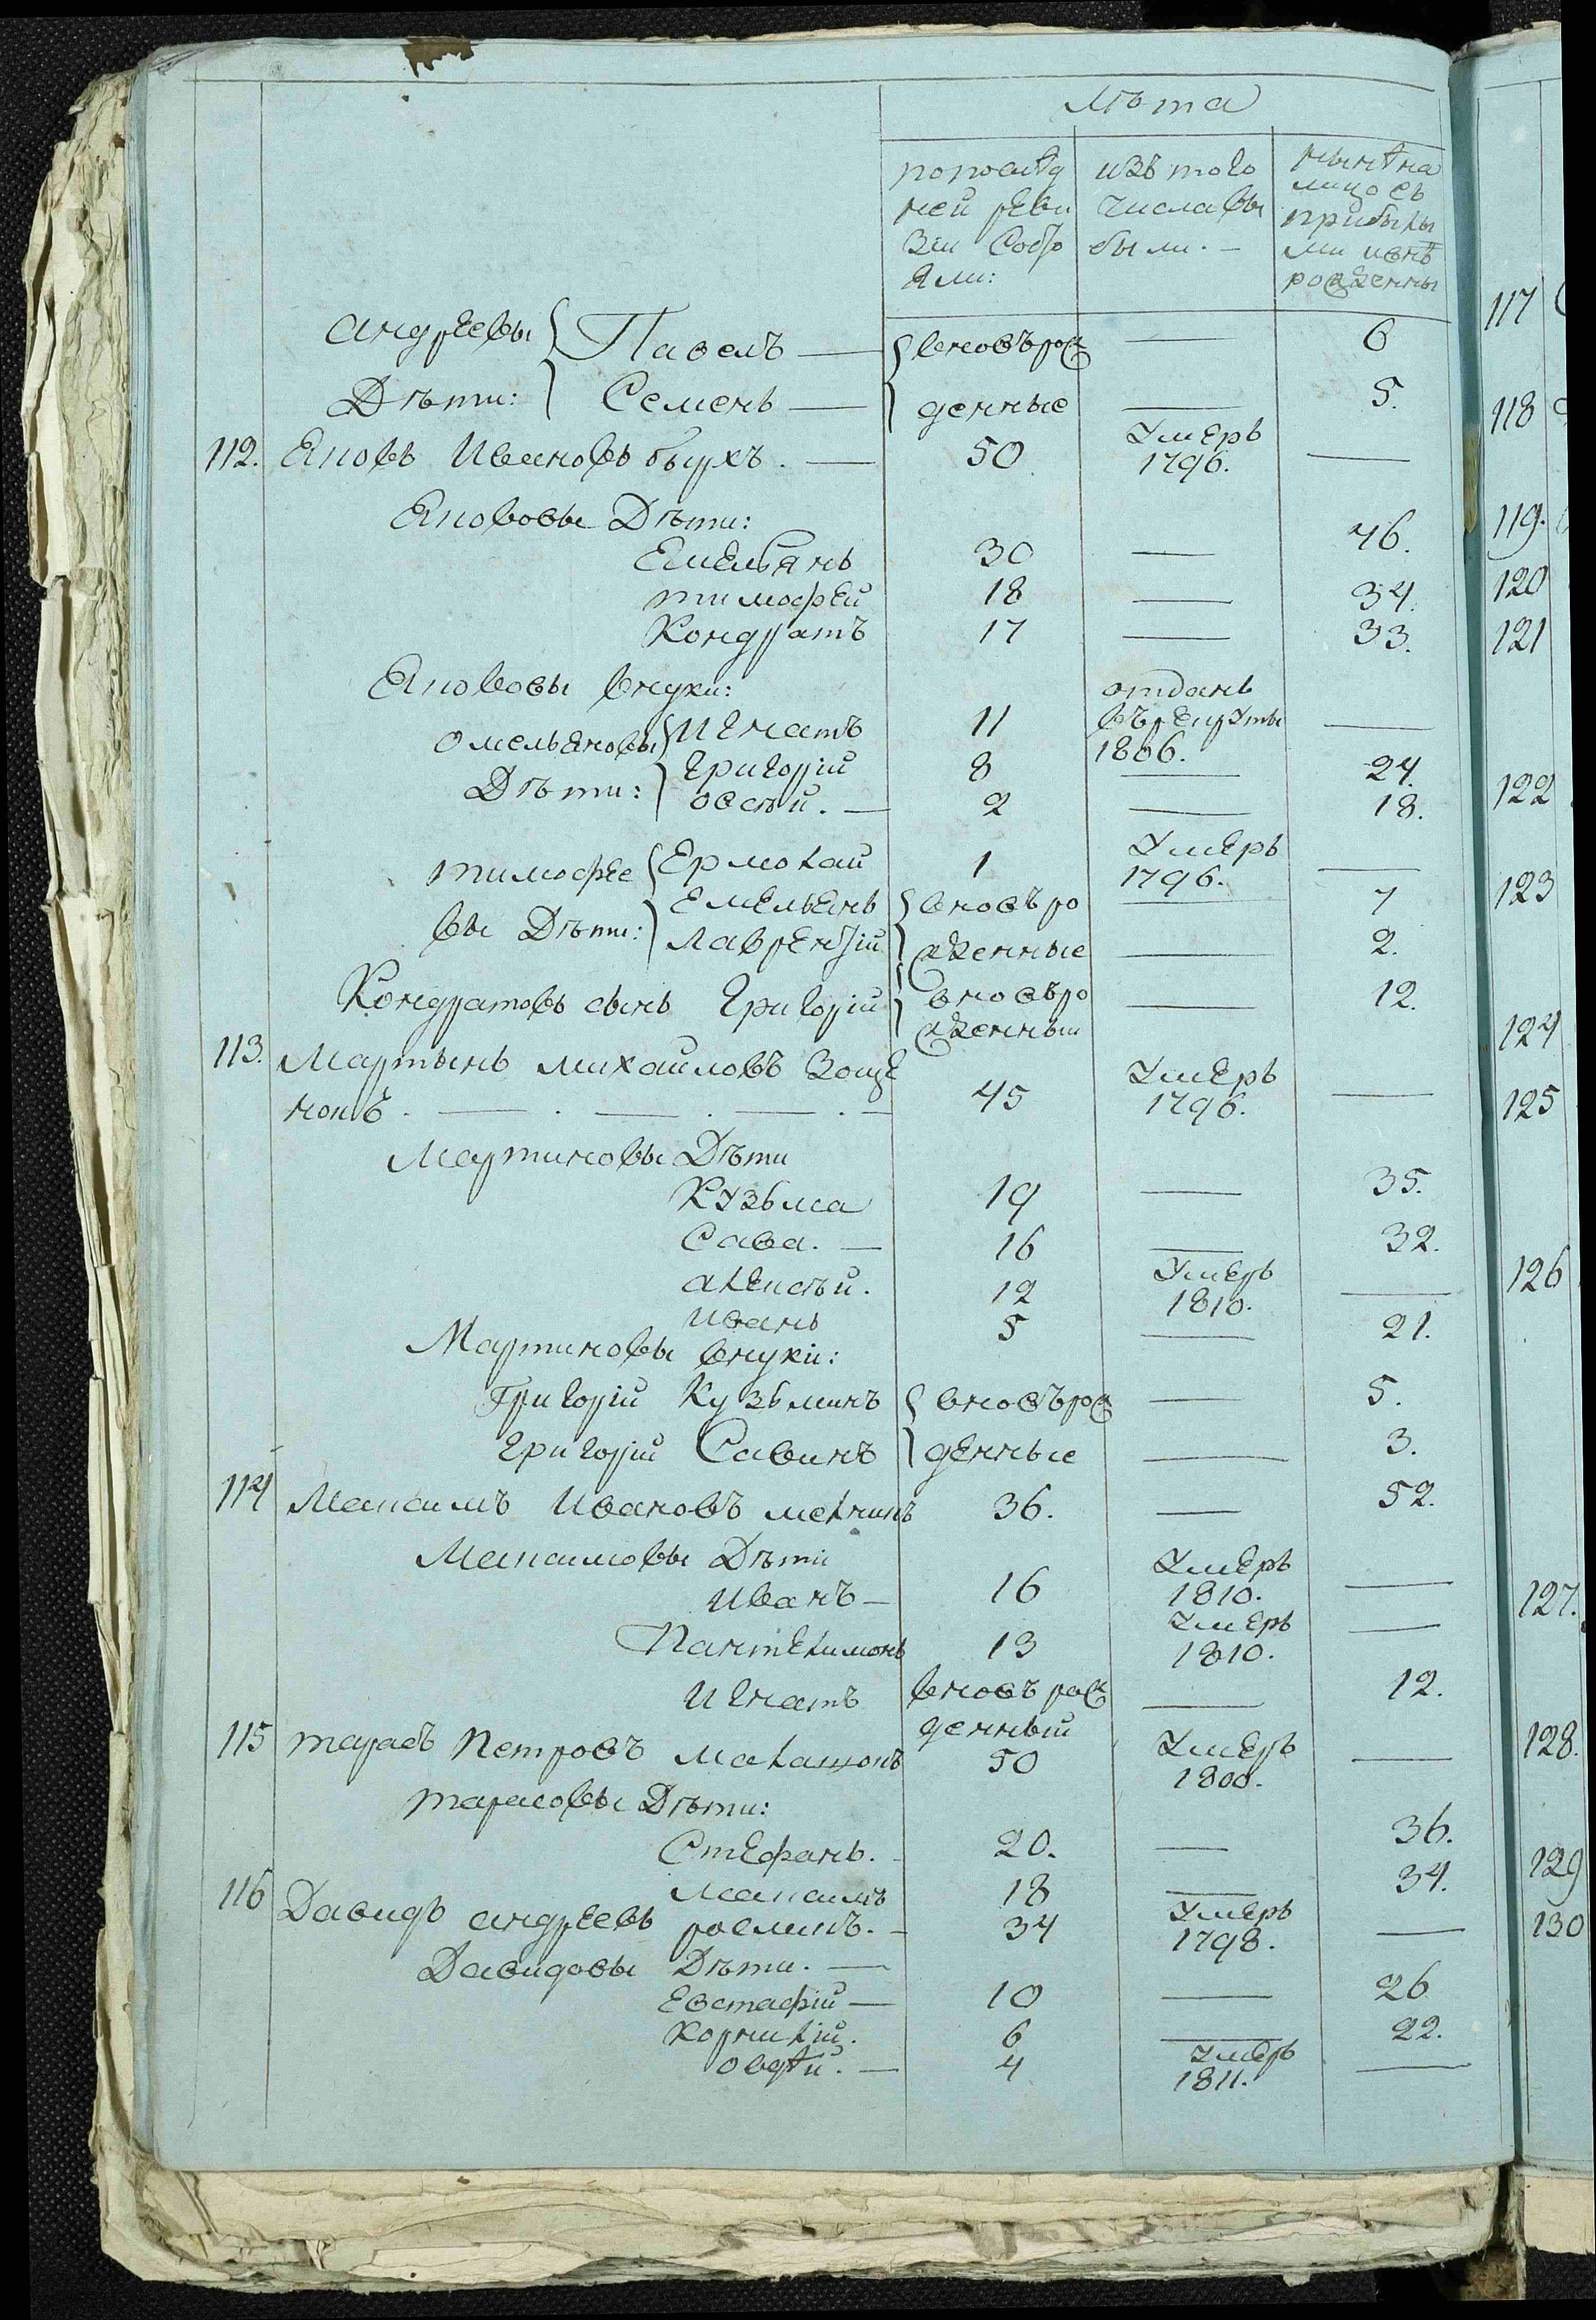 Лѣта
попослѣд изъ того нынѣ на
ней реви числа вы лицо съ
зіи состо были. — прибылы
яли: ми новѣ
рожденны
андреевы { Павелъ — { вновърож — 6
Дѣти: { Семенъ — денные — 5.
112. Яковъ Ивановъ быцкъ. — 50 Умеръ 1796. —
Якововы Дѣти:
Емельянъ 30 — 46.
тимофей 18 — 34.
Кондратъ 17 — 33.
Якововы внуки:
омельяновы { Игнатъ 11 отданъ въ рекруты 1806. —
Дѣти: григорій 8 — 24.
овсѣй. — 2 — 18.
тимофее { Ермолай 1 Умеръ 1796. —
вы Дѣти: Емельянъ { вновъро — 7
лаврентій жденные — 2.
Кондратовъ сынъ григорій { вновъро жденный — 12.
113. Мартынъ михайловъ Заце
нокъ. — . — . — . — 45 Умеръ 1796. —
Мартиновы Дѣти
Кузьма 19 — 35.
Сава. — 16 — 32.
алексѣй. 12 Умеръ 1810. —
иванъ 5 — 21.
Мартиновы внуки:
Григорій Кузьминъ { вновърож — 5.
григорій Савинъ денные — 3.
114 Максимъ Ивановъ 36. — 52.
Максимовы Дѣти
Иванъ — 16 Умеръ 1810. —
Пантелимонъ 13 Умеръ 1810. —
Игнатъ вновърож денный — 12.
115 тарасъ Петровъ 50 Умеръ 1800. —
тарасовы Дѣти:
Стефанъ. 20. — 36.
Максимъ 18 — 34.
116 Давидъ андреевъ 34 Умеръ 1798. —
Давидовы Дѣти. —
Евстафій — 10 — 26
Корнилій. 6 — 22.
овдѣй. — 4 Умеръ 1811. —
117
118
119.
120
121
122
123
124
125
126
127.
128.
129
130